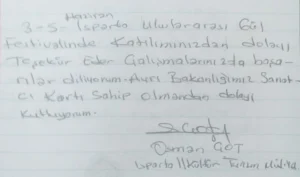 Haziran
3-5- Isparta Uluslararası Gül
Festivalinde Katılımınızdan dolayı
Teşekür Eder Çalışmalarınızda başa-
rılar diliyorum. Ayrı Bakanlığımız Sanat-
cı Kartı Sahip olmandan dolayı
Kutluyorum.
Osman GÖT
Isparta İl Kültür Turizm Müd.